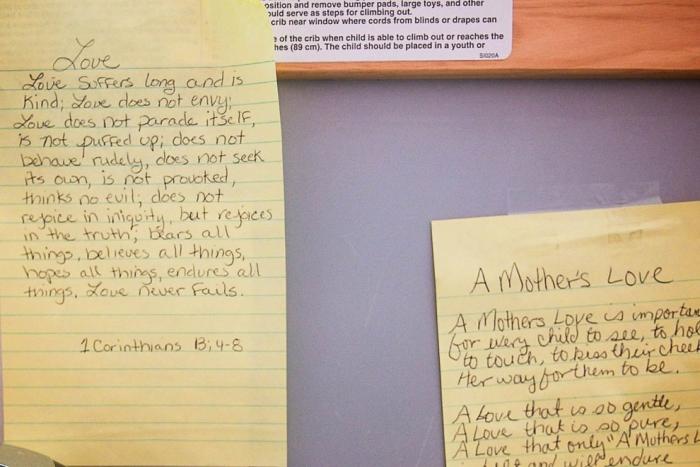 osition and remove bumper pads, large toys, and other
ould serve as steps for climbing out.
crib near window where cords from blinds or drapes can
of the crib when child is able to climb out or reaches the
hes (89 cm). The child should be placed in a youth or
Love
Love suffers long and is
Kind; Love does not envy;
Love does not parade itself,
is not puffed up; does not
behave rudely, does not seek
its own, is not provoked,
thinks no evil; does not
rejoice in iniquity, but rejoices
in the truth; bears all
things, believes all things,
hopes all things, endures all
things. Love never fails.
1 Corinthians 13;4-8
A Mother's Love
A Mothers Love is importan
for every child to see, to hol
to touch, to kiss their cheek
Her way for them to be.
A Love that is so gentle,
A Love that is so pure,
A Love that only "A Mothers L
and will endure